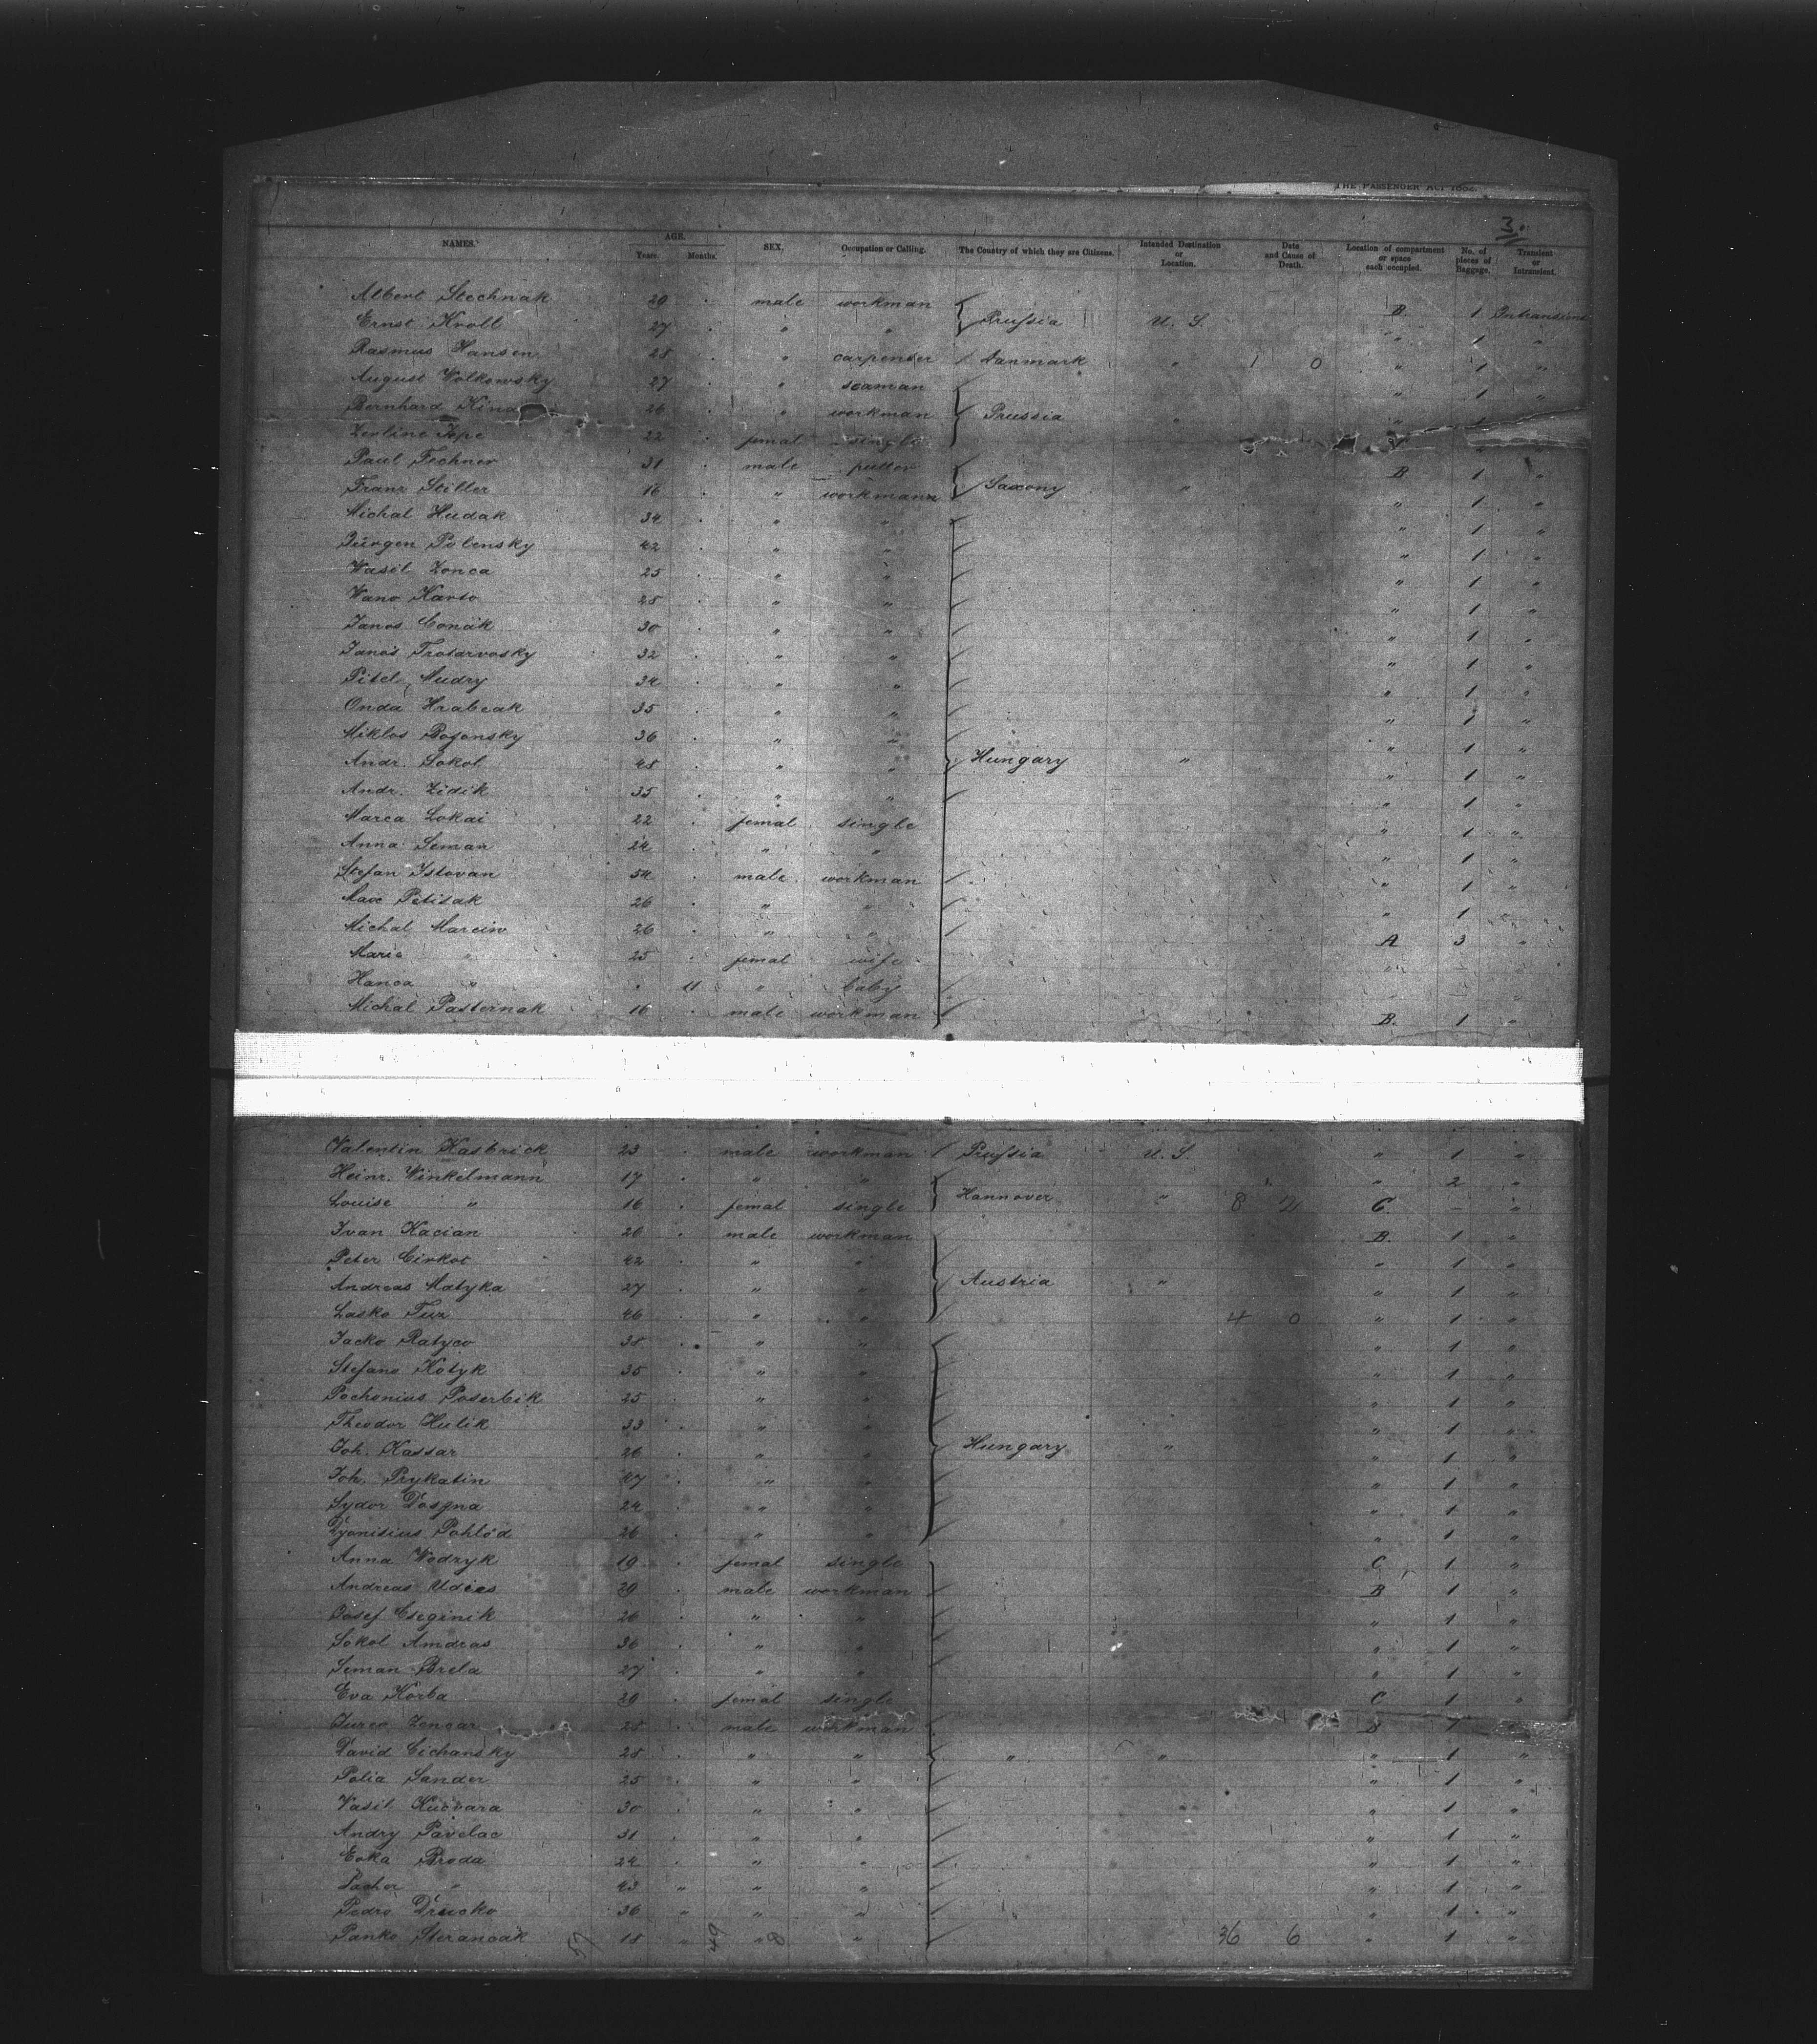 THE PASSENGER ACT 1882.
3.
NAMES. AGE. Years. Months. SEX. Occupation or Calling. The Country of which they are Citizens. Intended Destination or Location. Date and Cause of Death. Location of compartment or space each occupied. No. of pieces of Baggage. Transient or Intransient.
Albert Stechnak 29 . male workman B 1 Intransient
Ernst Kroll 27 . " " Prussia U. S. " 1 "
Rasmus Hansen 28 . " carpenter Danmark " 1 0 " 1 "
August Wolkowsky 27 . " seaman " 1 "
Bernhard 26 . " workman Prussia " "
22 . femal single
Paul Fechner 31 . male B 1 "
Franz Stiller 16 . " workmann Saxony " " 1 "
Michal Hudak 34 . " " " 1 "
Jürgen Polensky 42 . " " " 1 "
Wasil Zonca 25 . " " " 1 "
Wano Karso 28 . " " " 1 "
Janos Conak 30 . " " " 1 "
Janos Trosarvosky 32 . " " " 1 "
Pitel Mudry 34 . " " " 1 "
Onda Hrabcak 35 . " " " 1 "
Miklos Bogonsky 36 . " " " 1 "
Andr. Sokol 48 . " " Hungary " " 1 "
Andr. Zidik 35 . " " " 1 "
Marca Lokai 22 . femal single " 1 "
Anna Seman 24 . " " " 1 "
Stefan Istovan 54 . male workman " 1 "
Max Petisak 26 . " " " 1 "
Michal Marcin 26 . " " A 3 "
Marie " 25 . femal wife " "
Hanca " . 11 " baby "
Michal Pasternak 16 . male workman B. 1 "
Valentin Kasbrick 23 . male workman Prussia U. S. " 1 "
Heinr. Winkelmann 17 . " " " 2 "
Louise " 16 . femal single Hannover " 8 2 C - "
Ivan Kacian 26 . male workman B. 1 "
Peter Cirkot 42 . " " " 1 "
Andreas Matyka 27 . " " Austria " " 1 "
Lasko Tur 46 . " " 4 0 " 1 "
Jacko Ratyco 38 . " " " 1 "
Stefano Kotyk 35 . " " " 1 "
Pochonius Poserbik 25 . " " " 1 "
Theodor Hulik 33 . " " " 1 "
Joh. Kassar 26 . " " Hungary " " 1 "
Joh. Prykatin 47 . " " " 1 "
Sydor Dosgna 24 . " " " 1 "
Dyonisius Pohlod 26 . " " " 1 "
Anna Wodzyk 19 . femal single C 1 "
Andreas Udics 29 . male workman B 1 "
Josef Cseginik 26 . " " " 1 "
Sokol Amdras 36 . " " " 1 "
Seman Brela 27 . " " " 1 "
Eva Korba 20 . femal single C 1 "
Jurco Zencar 25 . male workman B 1
David Cichansky 28 . " " " " " 1 "
Polia Sander 25 . " " " 1 "
Vasil Kucvara 30 . " " " 1 "
Andry Pavelac 31 . " " " 1 "
Evka Broda 24 . " " " 1 "
" 43 " " " " 1 "
Pedro Drucko 36 " " " " 1 "
Panko Sterancak 57 18 " 49 " 8 " 36 6 " 1 "